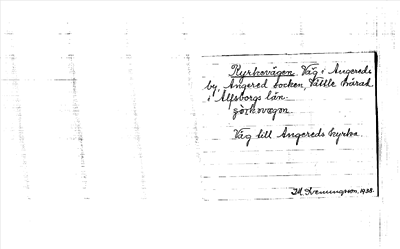 Kyrkovägen. Väg i Angereds
by, Angered socken, Vättle härad
i Älfsborgs län.
Väg till Angereds kyrka.
1938.